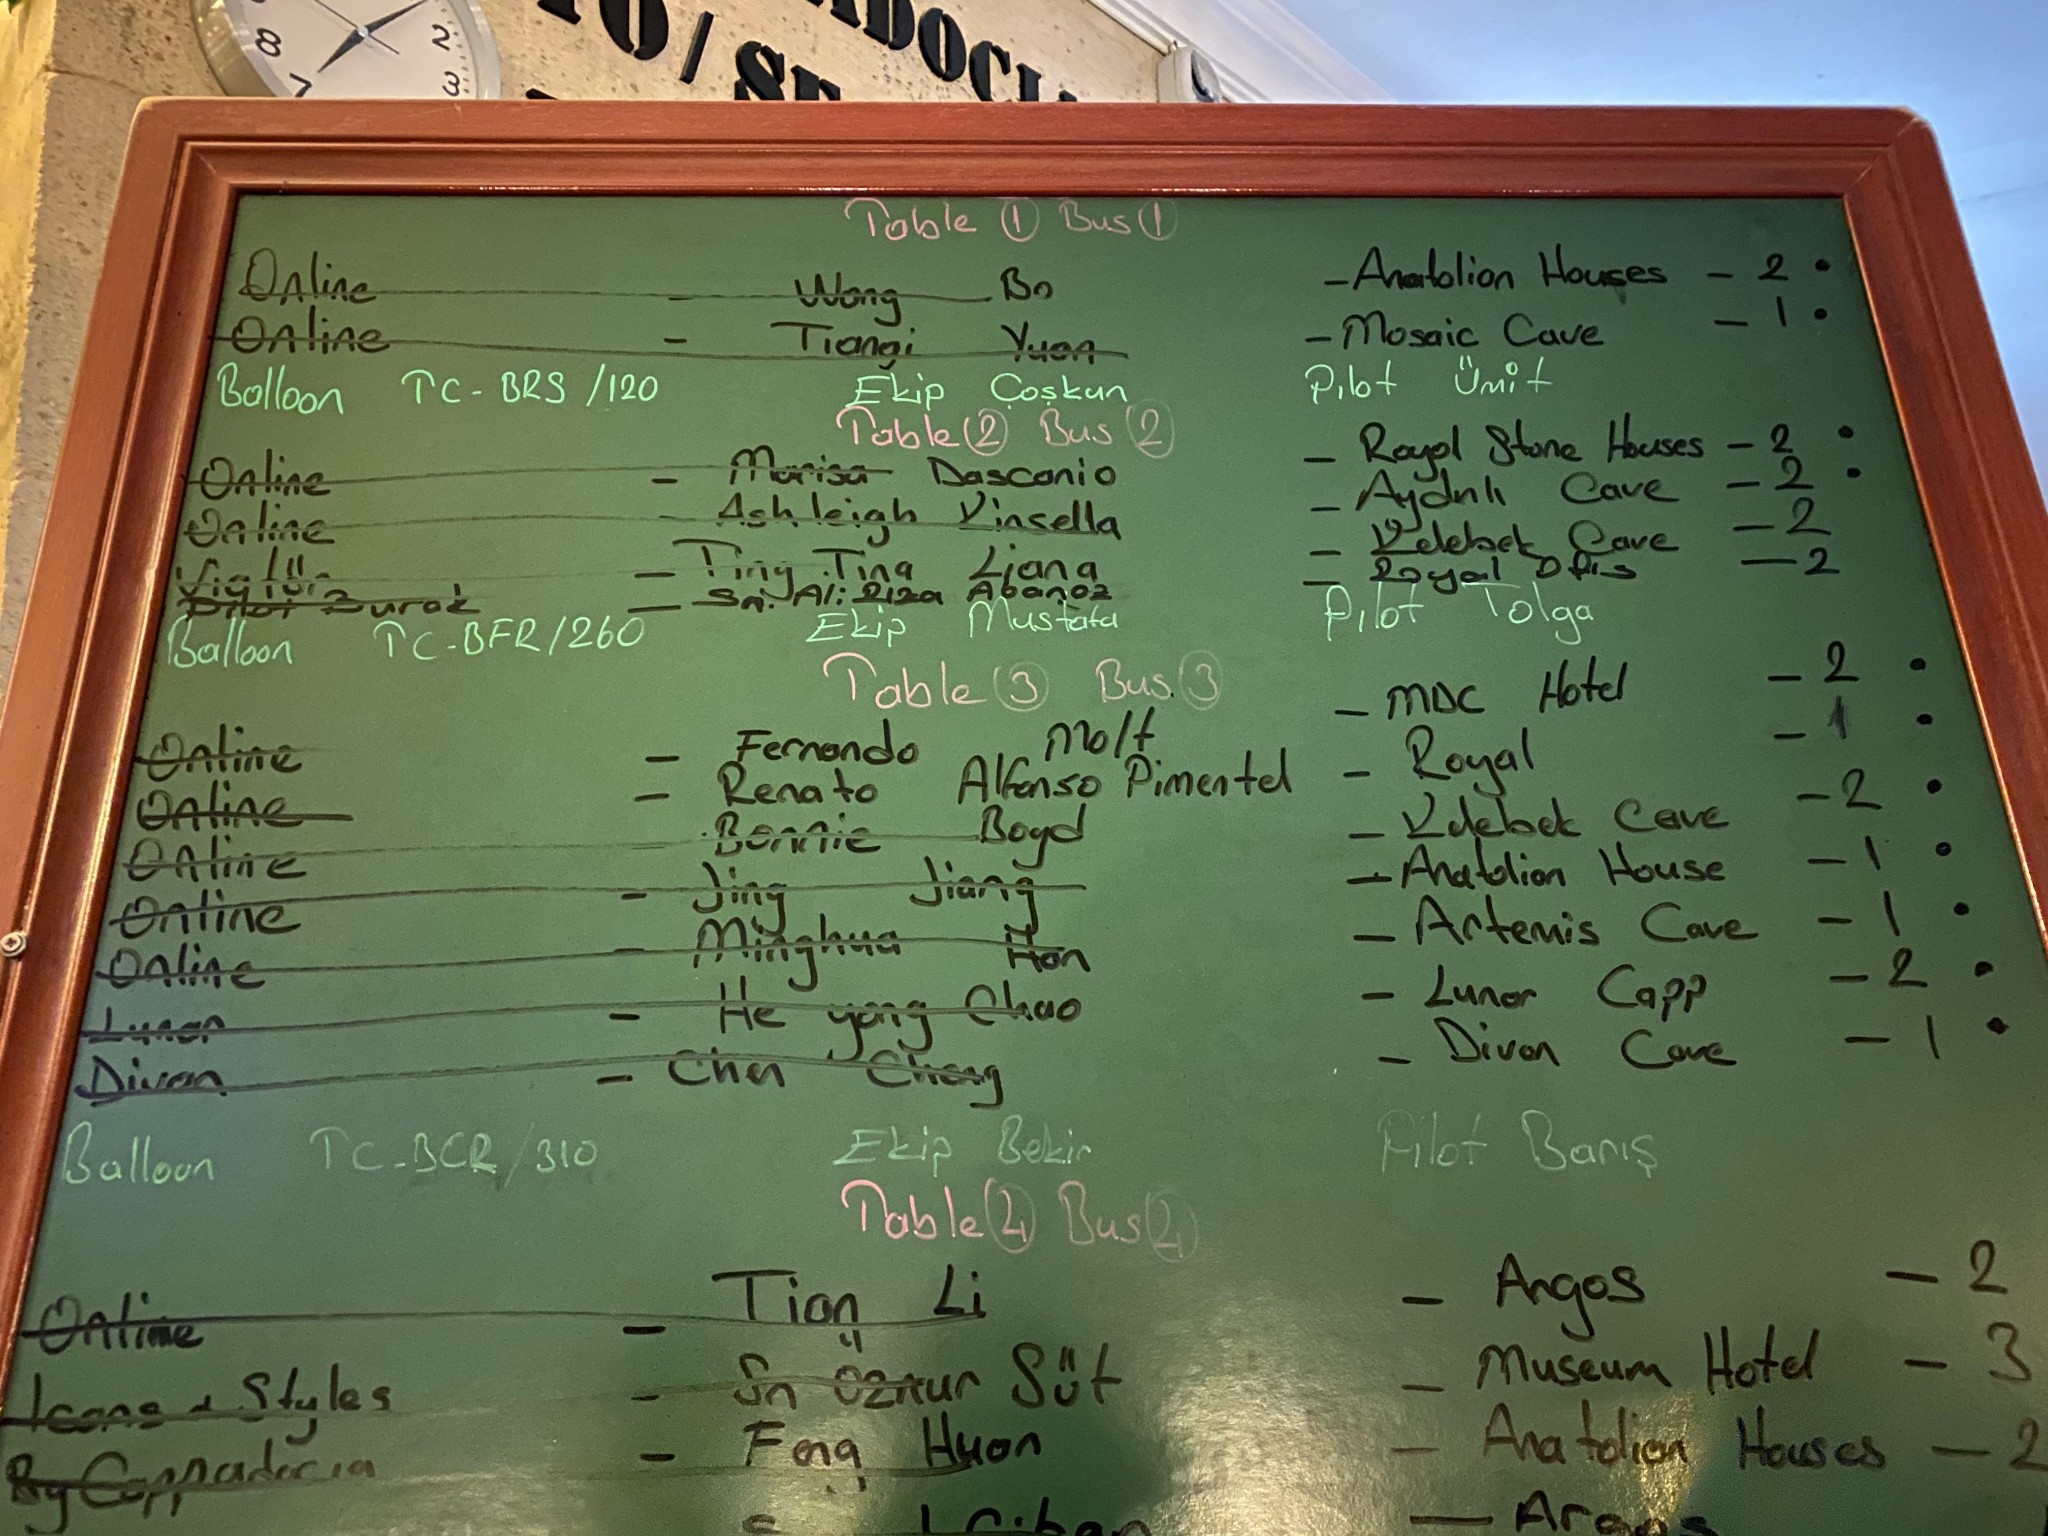 8 7 2 3
TO/ ADOCI
Table 1 Bus 1
Online - Wong Bo - Anatolian Houses - 2 •
Online - Tianqi Yuan - Mosaic Cave - 1 •
Balloon TC-BRS/120 Ekip Coşkun Pilot Ümit
Table 2 Bus 2
Online - Marisa Dascanio - Royal Stone Houses - 2 •
Online - Ashleigh Kinsella - Aydınlı Cave - 2 •
- Ting Ting Liang - Kelebek Cave - 2
Pilot Burak - Sn. Ali Rıza Abanoz - Royal Ofis - 2
Balloon TC-BFR/260 Ekip Mustafa Pilot Tolga
Table 3 Bus 3
Online - Fernando Molt - MDC Hotel - 2 •
Online - Renato Alfonso Pimentel - Royal - 1 •
Online Bonnie Boyd - Kelebek Cave - 2 •
Online - Jing Jiang - Anatolian House - 1 •
Online - Minghua Han - Artemis Cave - 1 •
Lunar - He yang Chao - Lunar Capp - 2 •
Divan - Chen Cheng - Divan Cave - 1 •
Balloon TC-BCR/310 Ekip Bekir Pilot Barış
Table 4 Bus 4
Online - Tian Li - Argos - 2
Icons & Styles - Sn Öznur Süt - Museum Hotel - 3
By Cappadocia - Feng Huan - Anatolian Houses - 2
- Argos